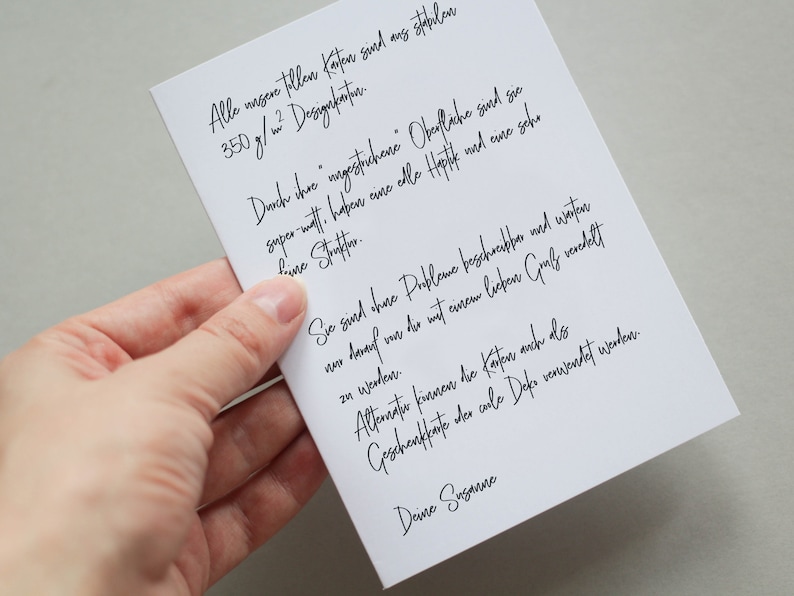 Alle unsere tollen Karten sind aus stabilen
350 g/m² Designkarton.
Durch ihre "ungestrichene" Oberfläche sind sie
super-matt, haben eine edle Haptik und eine sehr
feine Struktur.
Sie sind ohne Probleme beschreibbar und warten
nur darauf von dir mit einem lieben Gruß veredelt
zu werden.
Alternativ können die Karten auch als
Geschenkkarte oder coole Deko verwendet werden.
Deine Susanne